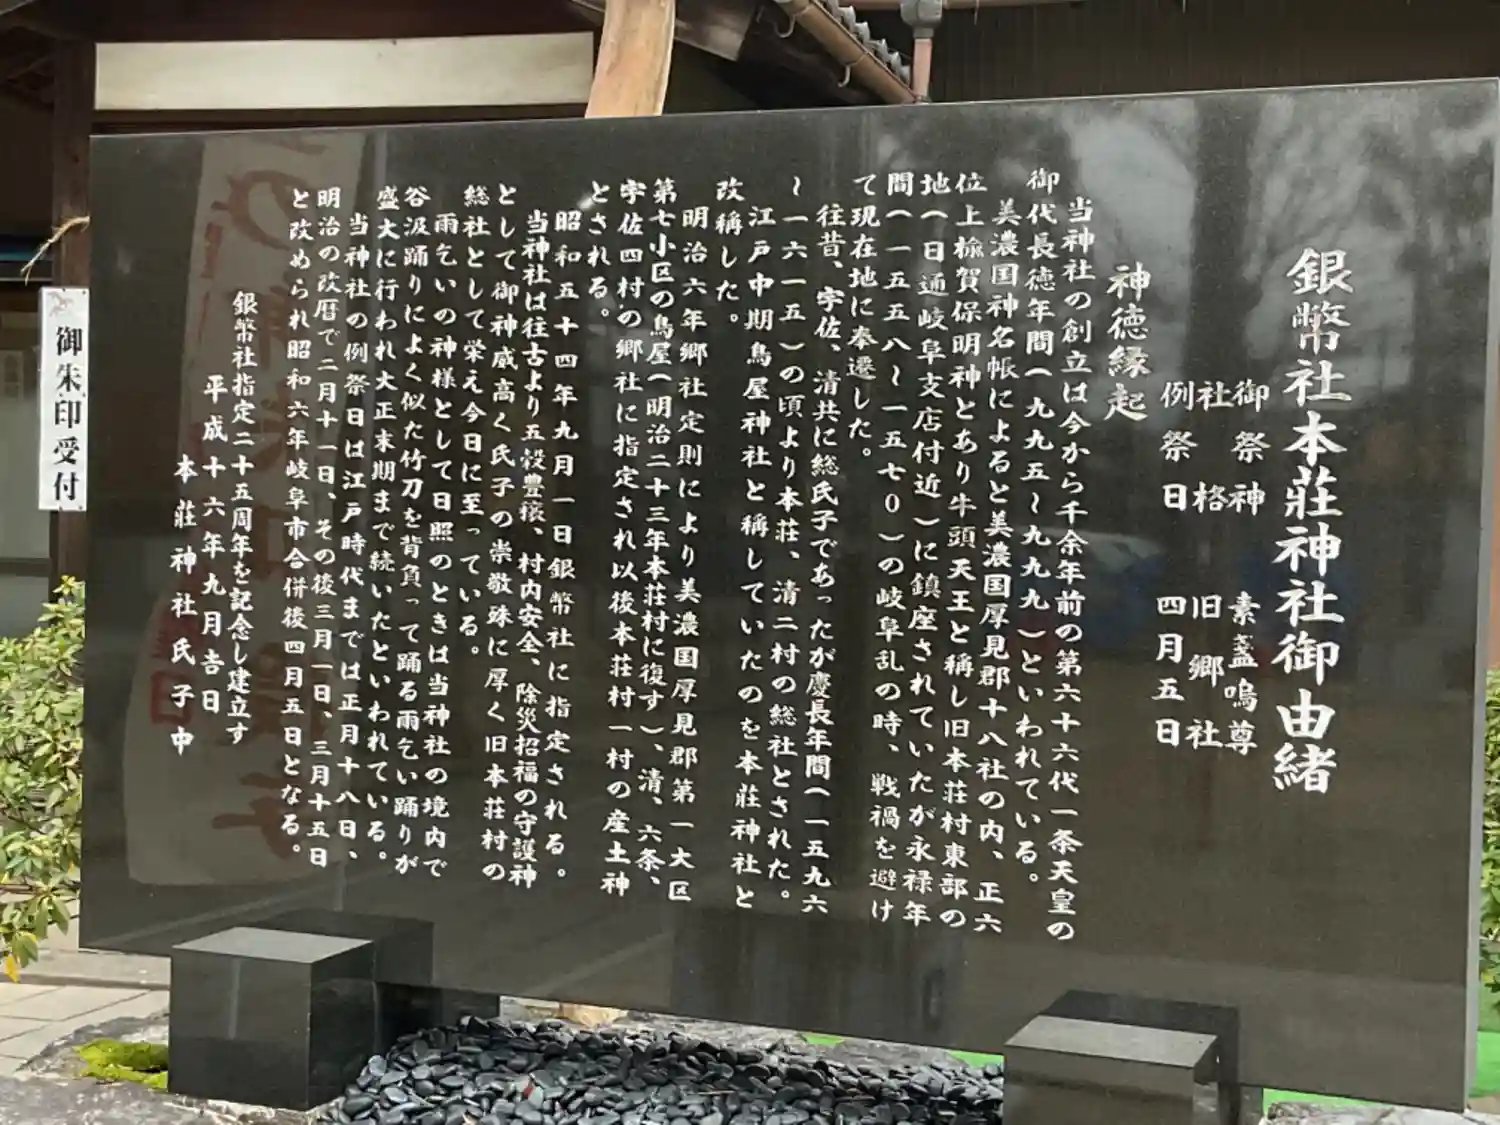 銀幣社本荘神社御由緒
御祭神 素盞嗚尊
社格 旧郷社
例祭日 四月五日
神徳縁起
当神社の創立は今から千余年前の第六十六代一条天皇の
御代長徳年間(九九五～九九九)といわれている。
美濃国神名帳によると美濃国厚見郡十八社の内、正六
位上楡賀保明神とあり牛頭天王と稱し旧本荘村東部の
地(日通岐阜支店付近)に鎮座されていたが永禄年
間(一五五八～一五七〇)の岐阜乱の時、戦禍を避け
て現在地に奉遷した。
往昔、宇佐、清共に総氏子であったが慶長年間(一五九六
～一六一五)の頃より本荘、清二村の総社とされた。
江戸中期鳥屋神社と稱していたのを本荘神社と
改稱した。
明治六年郷社定則により美濃国厚見郡第一大区
第七小区の鳥屋(明治二十三年本荘村に復す)、清、六条、
宇佐四村の郷社に指定され以後本荘村一村の産土神
とされる。
昭和五十四年九月一日銀幣社に指定される。
当神社は往古より五穀豊穣、村内安全、除災招福の守護神
として御神威高く氏子の崇敬殊に厚く旧本荘村の
総社として栄え今日に至っている。
雨乞いの神様として日照のときは当神社の境内で
谷汲踊りによく似た竹刀を背負って踊る雨乞い踊りが
盛大に行われ大正末期まで続いたといわれている。
当神社の例祭日は江戸時代までは正月十八日、
明治の改暦で二月十一日、その後三月一日、三月十五日
と改められ昭和六年岐阜市合併後四月五日となる。
銀幣社指定二十五周年を記念し建立す
平成十六年九月吉日
本荘神社氏子中
御朱印受付